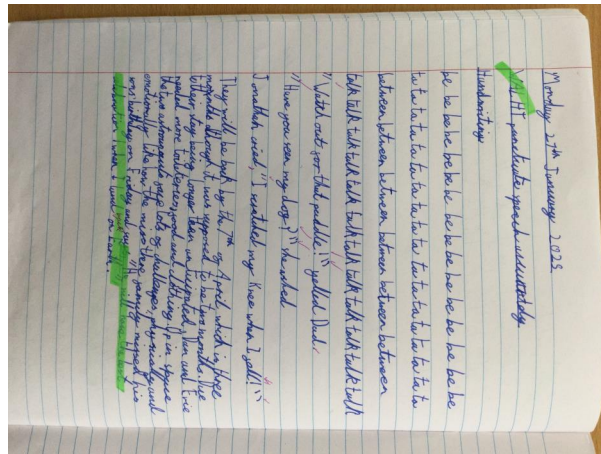 Monday 27th January 2025
punctuate speech accurately
Handwriting
be be be be be be be be be be be be be be
ta ta ta ta ta ta ta ta ta ta ta ta ta ta ta ta
between between between between between
talk talk talk talk talk talk talk talk talk talk talk talk
"Watch out for that puddle!" yelled Dad.
"Have you seen my dog?" he asked
Jonathan cried, "I scratched my knee when I fell!"
They will be back by the 7th of April which is three
months though it was supposed to be two months. Due
to their stay being longer than anticipated, Don and Eric
needed more oxygen, food and clothing. Up in space
the two astronauts face lots of challenges, physically and
emotionally like how the mice there. Jimmy missed his
was birthday on Friday and says, "
when I land on Earth.